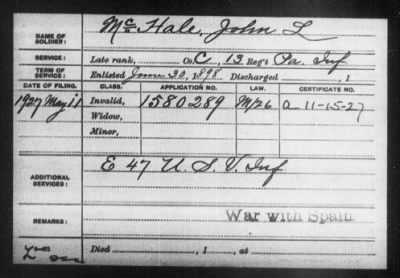 NAME OF SOLDIER: Mc Hale, John L
SERVICE: Late rank, Co. C, 13 Reg't Pa. Inf
TERM OF SERVICE: Enlisted June 30, 1898 Discharged , 1
DATE OF FILING. CLASS. APPLICATION NO. LAW. CERTIFICATE NO.
1927 May 11 Invalid, 1580289 M/26 a 11-15-27
Widow,
Minor,
ADDITIONAL SERVICES: E 47 U. S. V. Inf
REMARKS: War with Spain
Died , 1 , at